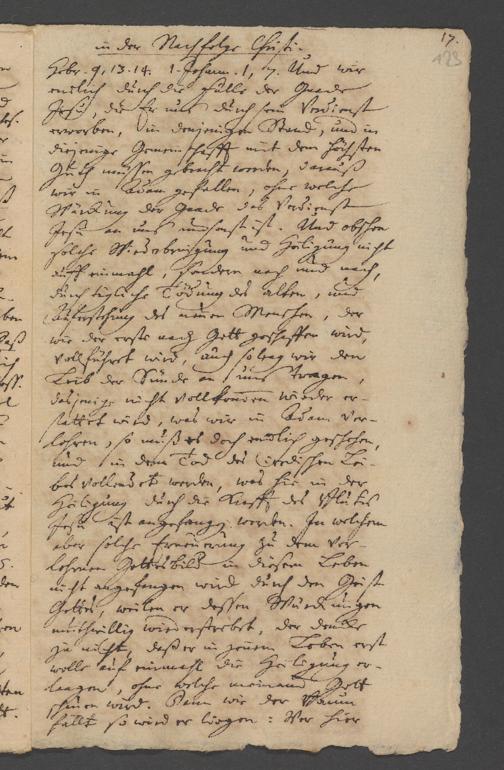 17.
123
in der Nachfolge Christi.
Hebr. 9, 13. 14. 1. Johann. 1, 7. Und wir
endlich durch die Fülle der Gnade
Jesu, die Er uns durch sein Verdienst
erworben, in denjenigen Stand, und in
diejenige Gemeinschafft mit dem höchsten
Guth müssen gebracht werden, darauß
wir in Adam gefallen, ohne welche
Würckung der Gnade das Verdienst
Jesu an uns umsonst ist. Und obschon
solche Wiederbringung und Heiligung nicht
auff einmahl, sondern nach und nach,
durch tägliche Tödtung des alten, und
Auferstehung des neuen Menschen, der
wie der erste nach Gott geschaffen wird,
vollführet wird, auch solang wir den
Leib der Sünde an uns tragen,
dasjenige nicht vollkommen wieder er-
stattet wird, was wir in Adam ver-
lohren, so muß es doch endlich geschehen,
und in dem Tod des irdischen Lei-
bes vollendet werden, was hie in der
Heiligung durch die Krafft des Bluts
Jesu ist angefangen worden. In welchem
aber solche Erneuerung zu dem ver-
lohrnen Gottesbild in diesem Leben
nicht angefangen wird durch den Geist
Gottes, weilen er dessen Würckungen
muthwillig widerstrebet, der dencke
ja nicht, daß er in jenem Leben erst
wolle auf einmahl die Heiligung er-
langen, ohne welche niemand Gott
schauen wird. Dann wie der Baum
fällt so wird er liegen: Wer hier